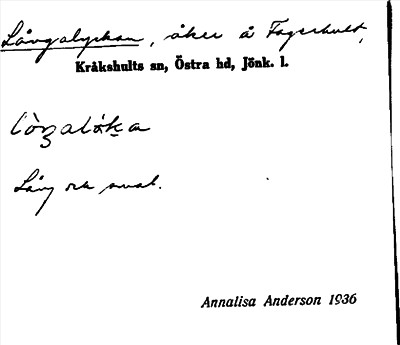 Långalyckan, åker å Fagerhult,
Kråkshults sn, Östra hd, Jönk. l.
Lång och smal.
Annalisa Anderson 1936